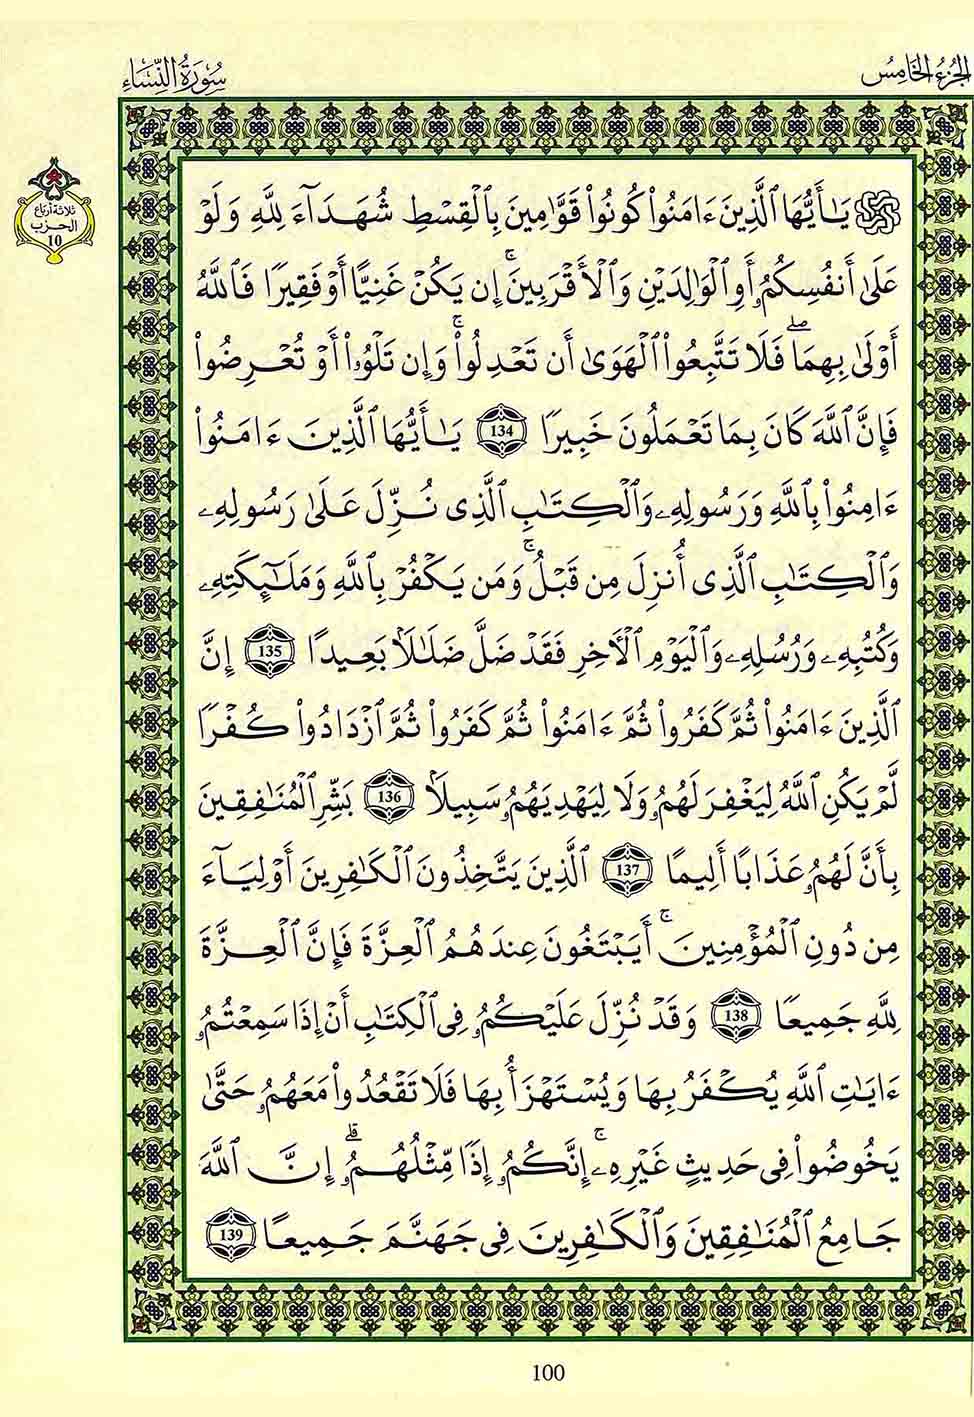 الجزء الخامس
سورة النساء
ثلاثة أرباع
الحزب
10
يَٰٓأَيُّهَا اَ۬لذِينَ ءَامَنُواْ كُونُواْ قَوَّٰمِينَ بِالْقِسْطِ شُهَدَآءَ لِلهِ وَلَوْ
عَلَىٰ أَنفُسِكُمُۥٓ أَوِ اِ۬لْوَٰلِدَيْنِ وَالْأَقْرَبِينَۚ إِن يَكُنْ غَنِيًّا أَوْ فَقِيرًا فَاللَّهُ
أَوْلَىٰ بِهِمَاۖ فَلَا تَتَّبِعُواْ اُ۬لْهَوَىٰ أَن تَعْدِلُواْۚ وَإِن تَلْوُۥٓاْ أَوْ تُعْرِضُواْ
فَإِنَّ اَ۬للَّهَ كَانَ بِمَا تَعْمَلُونَ خَبِيرًا 134 يَٰٓأَيُّهَا اَ۬لذِينَ ءَامَنُواْ
ءَامِنُواْ بِاللَّهِ وَرَسُولِهِۦ وَالْكِتَٰبِ اِ۬لذِى نُزِّلَ عَلَىٰ رَسُولِهِۦ
وَالْكِتَٰبِ اِ۬لذِى أُنزِلَ مِن قَبْلُۚ وَمَن يَكْفُرْ بِاللَّهِ وَمَلَٰٓئِكَتِهِۦ
وَكُتُبِهِۦ وَرُسُلِهِۦ وَالْيَوْمِ اِ۬لْأَخِرِ فَقَد ضَّلَّ ضَلَٰلًا بَعِيدًا 135 إِنَّ
اَ۬لذِينَ ءَامَنُواْ ثُمَّ كَفَرُواْ ثُمَّ ءَامَنُواْ ثُمَّ كَفَرُواْ ثُمَّ اَ۪زْدَادُواْ كُفْرًا
لَّمْ يَكُنِ اِ۬للَّهُ لِيَغْفِرَ لَهُمُۥ وَلَا لِيَهْدِيَهُمُۥ سَبِيلًا 136 بَشِّرِ اِ۬لْمُنَٰفِقِينَ
بِأَنَّ لَهُمُۥ عَذَابًا أَلِيمًا 137 اِ۬لذِينَ يَتَّخِذُونَ اَ۬لْكَٰفِرِينَ أَوْلِيَآءَ
مِن دُونِ اِ۬لْمُؤْمِنِينَۚ أَيَبْتَغُونَ عِندَهُمُ اُ۬لْعِزَّةَ فَإِنَّ اَ۬لْعِزَّةَ
لِلهِ جَمِيعًا 138 وَقَدْ نُزِّلَ عَلَيْكُمُۥ فِى اِ۬لْكِتَٰبِ أَنْ إِذَا سَمِعْتُمُۥ
ءَايَٰتِ اِ۬للَّهِ يُكْفَرُ بِهَا وَيُسْتَهْزَأُ بِهَا فَلَا تَقْعُدُواْ مَعَهُمُۥ حَتَّىٰ
يَخُوضُواْ فِى حَدِيثٍ غَيْرِهِۦۚ إِنَّكُمُۥ إِذًا مِّثْلُهُمُۥۗ إِنَّ اَ۬للَّهَ
جَامِعُ اُ۬لْمُنَٰفِقِينَ وَالْكَٰفِرِينَ فِى جَهَنَّمَ جَمِيعًا 139
100